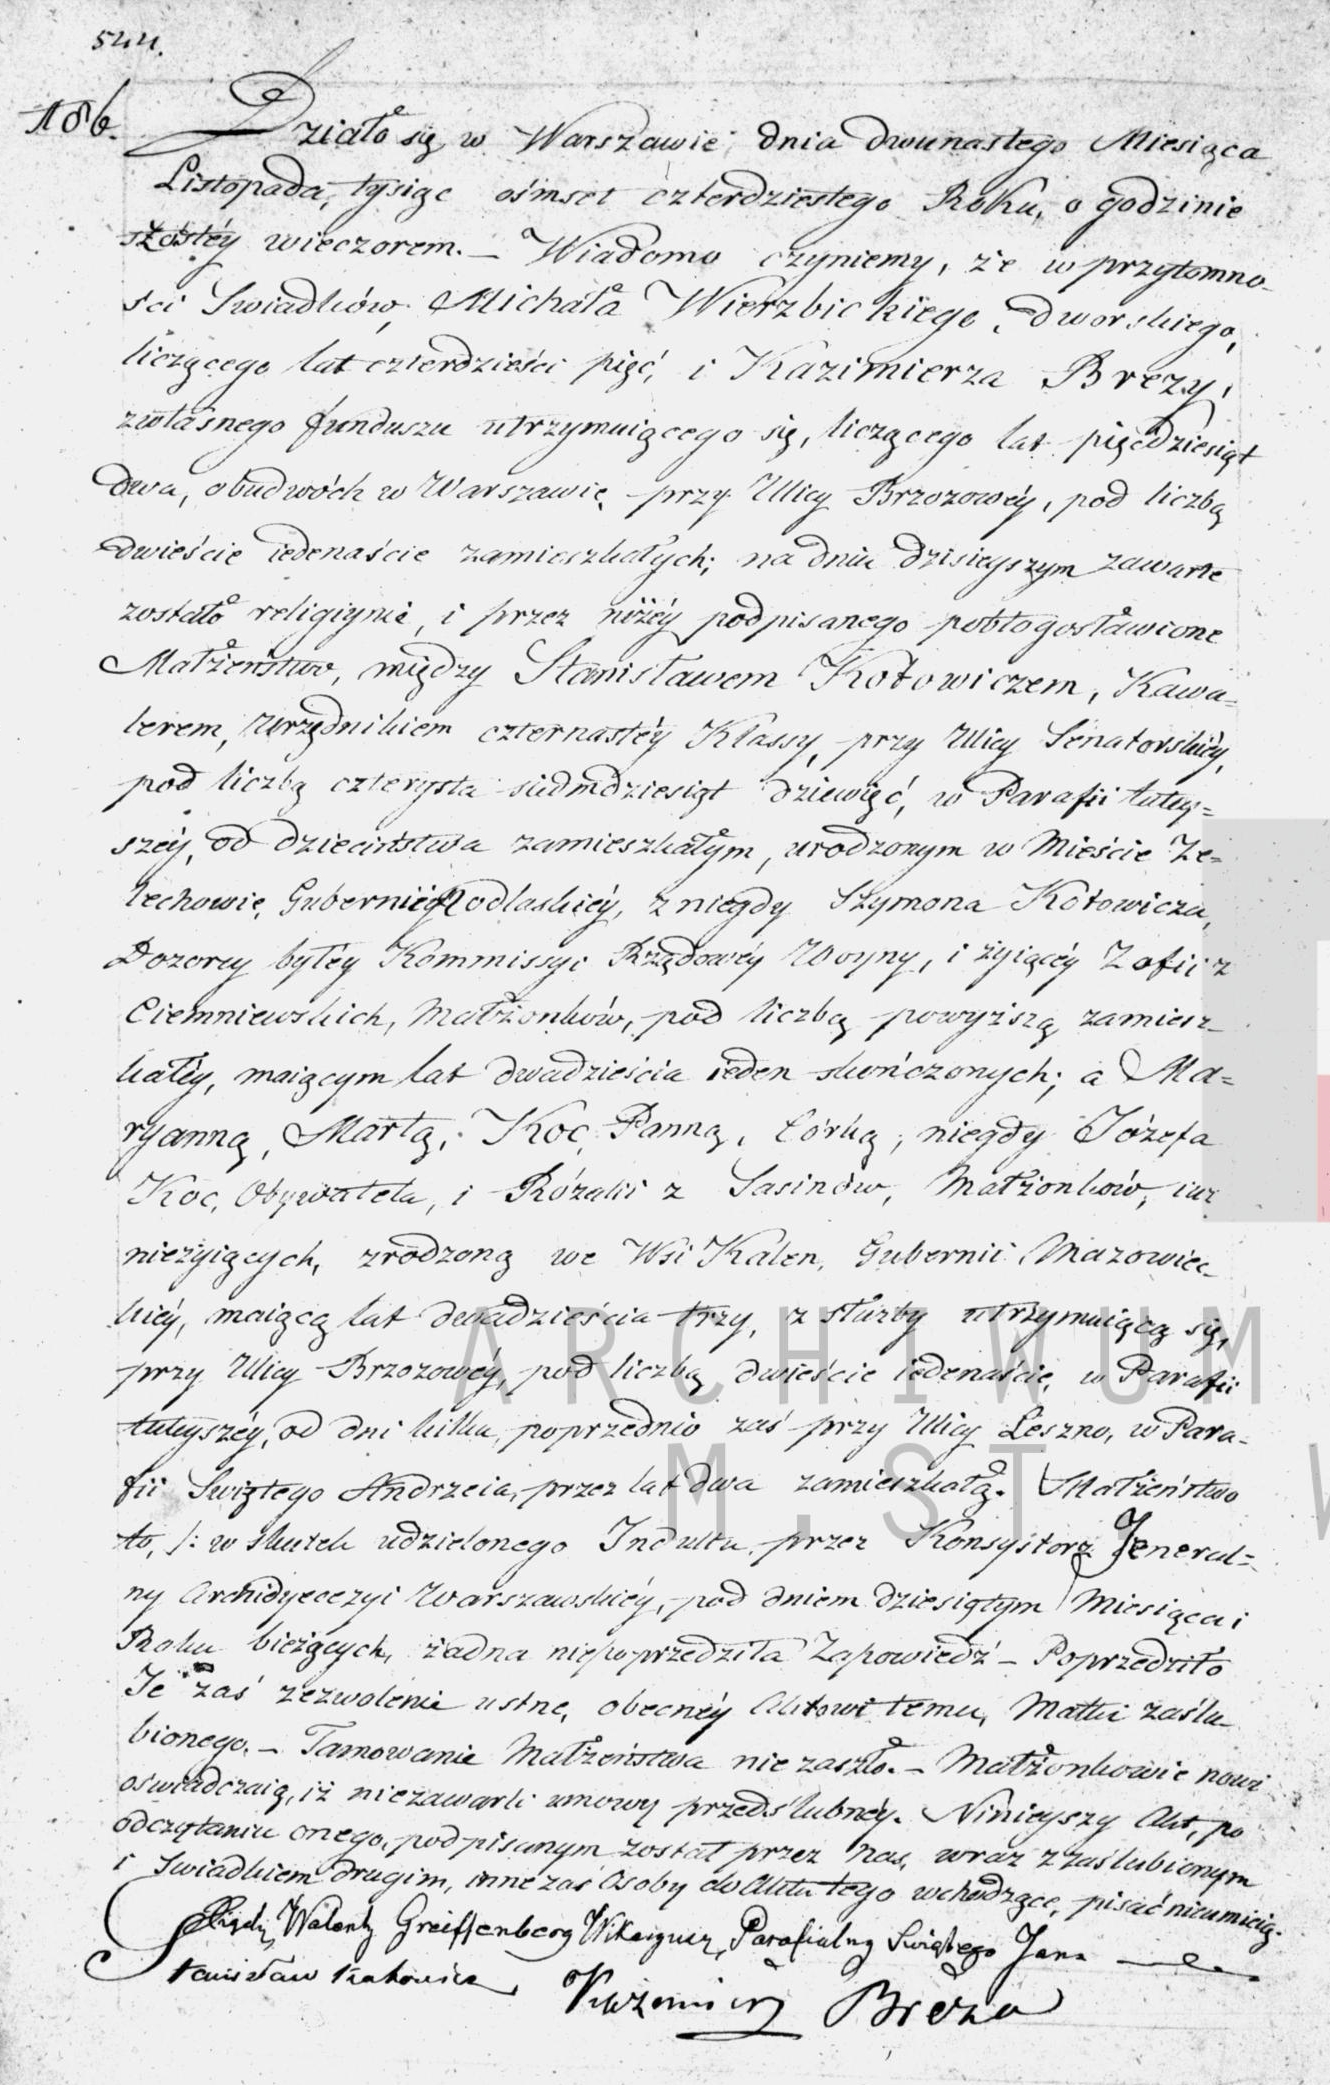 544.
186.
Działo się w Warszawie, dnia dwunastego Miesiąca
Listopada, tysiąc ośmset czterdziestego Roku, o godzinie
szóstéy wieczorem. – Wiadomo czyniemy, że w przytomno-
ści Swiadków, Michała Wierzbickiego, dworskiego,
liczącego lat czterdzieści pięć, i Kazimierza Brezy,
zwłasnego funduszu utrzymuiącego się, liczącego lat pięćdziesiąt
dwa, obudwóch w Warszawie, przy Ulicy Brzozowéy, pod liczbą
dwieście iedenaście zamieszkałych; na dniu dzisieyszym zawarte
zostało religiynie, i przez niżéy podpisanego pobłogosławione
Małżeństwo, między Stanisławem Kotowiczem, Kawa-
lerem, Urzędnikiem czternastéy Klassy, przy Ulicy Senatorskiéy,
pod liczbą czterysta siedmdziesiąt dziewięć, w Parafii tutey=
széy, od dzieciństwa zamieszkałym, urodzonym w Mieście Że=
lechowie, Gubernii Podlaskiéy, z niegdy Szymona Kotowicza,
Dozorcy byłéy Kommissyi Rządowéy Woyny, i żyiącéy Zofii z
Ciemniewskich, Małżonków, pod liczbą powyższą zamiesz-
kałéy, maiącym lat dwadzieścia ieden skończonych; a Ma=
ryanną, Martą, Koc, Panną, Córką, niegdy Józefa
Koc, Obywatela, i Rózalii z Sasinów, Małżonków, iuż
nieżyiących, zrodzoną we Wsi Kalen, Gubernii Mazowiec-
kiéy, maiącą lat dwadzieścia trzy, z służby utrzymuiącą się,
przy Ulicy Brzozowéy, pod liczbą dwieście iedenaście, w Parafii
tuteyszéy, od dni kilku, poprzednio zaś przy Ulicy Leszno, w Para-
fii Swiętego Andrzeia, przez lat dwa zamieszkałą. Małżeństwo
to, /: w skutek udzielonego Indultu, przez Konsystorz Jeneral=
ny Archidyecezyi Warszawskiéy, pod dniem dziesiątym Miesiąca i
Roku bieżących, żadna niepoprzedziła Zapowiedź – Poprzedziło
Je zaś zezwolenie ustne, obecnéy Aktowi temu, Matki zaślu-
bionego. – Tamowanie Małżeństwa nie zaszło. – Małżonkowie nowi
oświadczaią, iż niezawarli umowy przedślubnéy. Ninieyszy Akt, po
odczytaniu onego, podpisanym został przez Nas, wraz z zaślubionym
i Swiadkiem drugim, inne zaś Osoby do Aktu tego wchodzące, pisać nieumieią.
Xiądz Walenty Greiffenberg Wikaryusz Parafialny Swiętego Jana
Stanisław Kotowicz
Kazimierz Breza
ARCHIWUM
M. ST. W